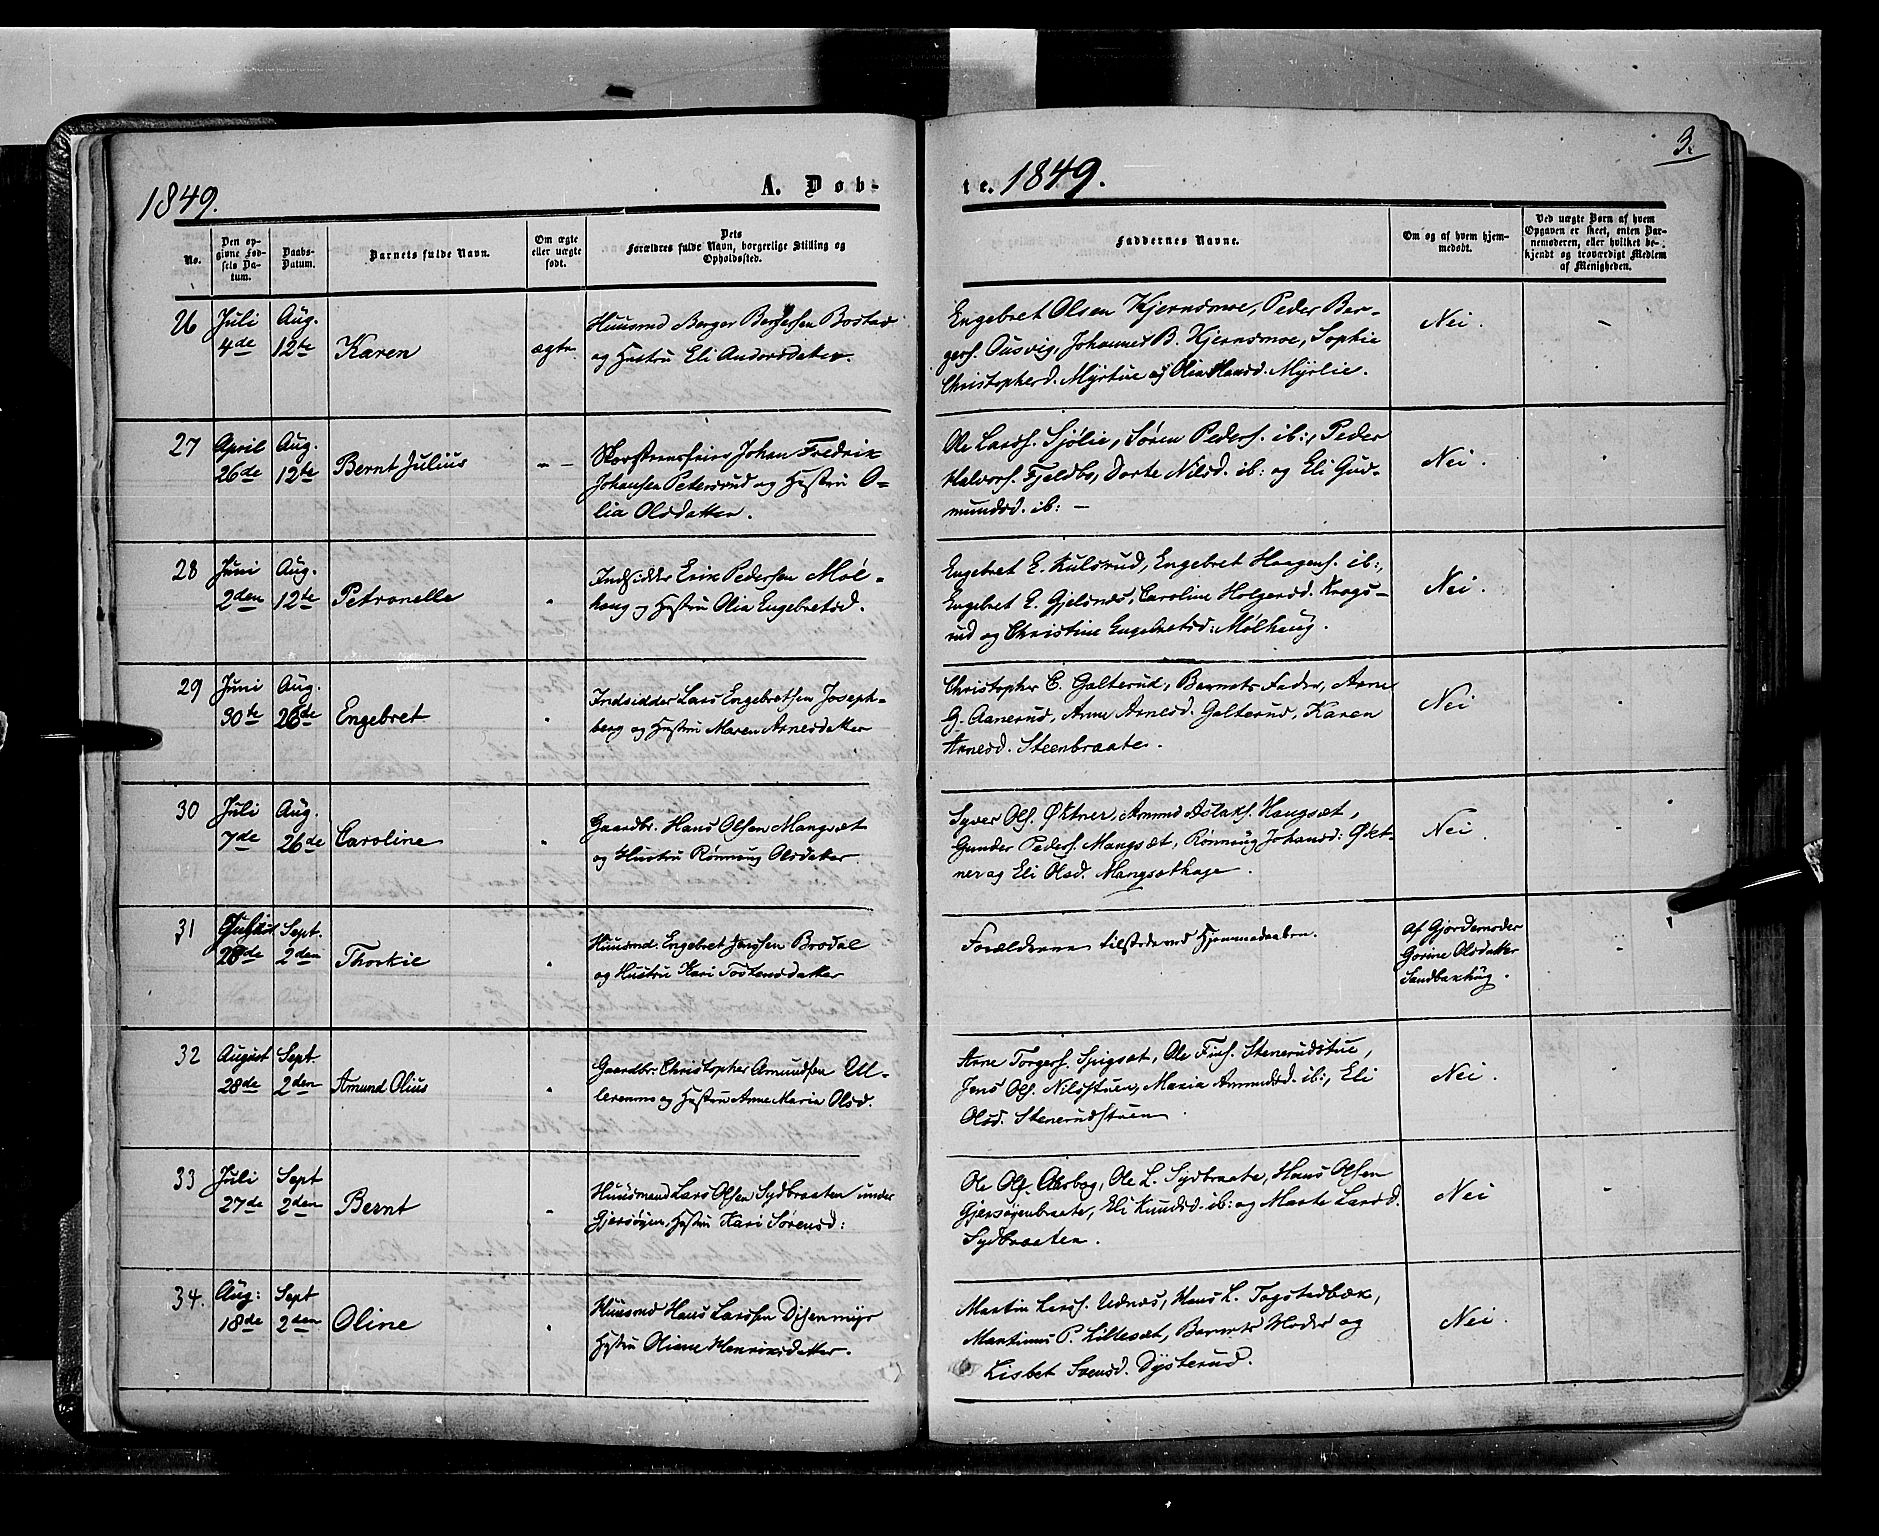 3.
1849.
A. Døb-
te. 1849.
No.
Den op-
givne Fød-
sels Da-
tum.
Daabs-
Datum.
Barnets fulde Navn.
Om ægte
eller uægte
født.
Dets
Forældres fulde Navn, borgerlige Stilling og
Opholdssted.
Faddernes Navne.
Om og af hvem hjem-
medøbt.
Ved uægte Børn af hvem
Opgaven er skeet, enten Bar-
nemoderen, eller hvilket be-
kjendt og troværdigt Medlem
af Menigheden.
26
Juli
4de
Aug.
12te
Karen
ægte
Huusmd Berger Bergersen Bostad
og Hustru Eli Andersdatter.
Engebret Olsen Kjernsmoe, Peder Ber-
gers. Ousvig, Johannes B. Kjernsmoe, Sophie
Christopherd. Myrtue og Olia Hansd. Myrlie.
Nei.
-
27
April
26de
Aug.
12te
Bernt Julius
- -
Skorsteensfeier Johan Fredrik
Johansen Petersrud og Hustru O-
lia Olsdatter.
Ole Larss. Sjølie, Søren Peders. ib:, Peder
Halvors. Fjeldbo, Dorte Nilsd. ib: og Eli Gud-
mundsd. ib: -
Nei.
28
Juni
2den
Aug.
12te
Petronelle
Indsidder Erik Pedersen Møl-
haug og Hustru Olia Engebretsd.
Engebret E. Kulsrud, Engebret Haagens. ib:,
Engebret E. Gjelsnes, Caroline Holgersd. Krogs-
rud og Christine Engebretsd: Mølhaug.
Nei.
29
Juni
30te
Aug.
26de
Engebret
Indsidder Lars Engebretsen Joseph-
berg og Hustru Maren Arnesdatter
Christopher E. Galterud, Barnets Fader, Arne
G. Aanerud, Anne Arnesd. Galterud, Karen
Arnesd. Steenbraate.
Nei
30
Juli
7de
Aug.
26de
Caroline
Gaardbr. Hans Olsen Mangsæt
og Hustru Rønnaug Olsdatter
Syver Ols. Øktner, Amund Aslaks. Hangsæt,
Gunder Peders. Mangsæt, Rønnaug Johansd: Økt-
ner og Eli Olsd. Mangsæthage.
Nei.
31
28de
Sept.
2den
Thorkil
Huusmd. Engebret Jenssen Brodal
og Hustru Kari Tostensdatter
Forældrene tilstede ved Hjemmedaaben.
Af Gjordemoder
Gorine Olsdatter
Sandbækhug.
32
August
28de
Sept
2den
Amund Olius
Gaardbr. Christopher Amundsen Ul-
lerenmo og Hustru Anne Maria Olsd.
Arne Torgers. Spigsæt, Ole Fins. Stenerudstue,
Jens Ols. Nilsstuen, Maria Amundsd. ib:, Eli
Olsd. Stenerudstuen.
Nei.
33
Juli
27de
Sept
2den
Bernt
Huusmand Lars Olsen Sydbraaten under
Gjersøyen, Hustru Kari Sørensd:
Ole Ols. Aasbog, Ole L. Sydbraate, Hans Olsen
Gjersøyenbraate, Eli Knudsd. ib: og Marte Larsd.
Sydbraaten.
Nei
34.
Aug:
18de
Sept
2den
Oline
Huusmd Hans Larssen Disenmyr
Hustru Oliane Henriksdatter.
Martin Larss. Udnes, Hans L. Togstadbæk,
Martinus P. Lillesæt, Barnets Moder og
Lisbet Svensd. Dysterud.
Nei.